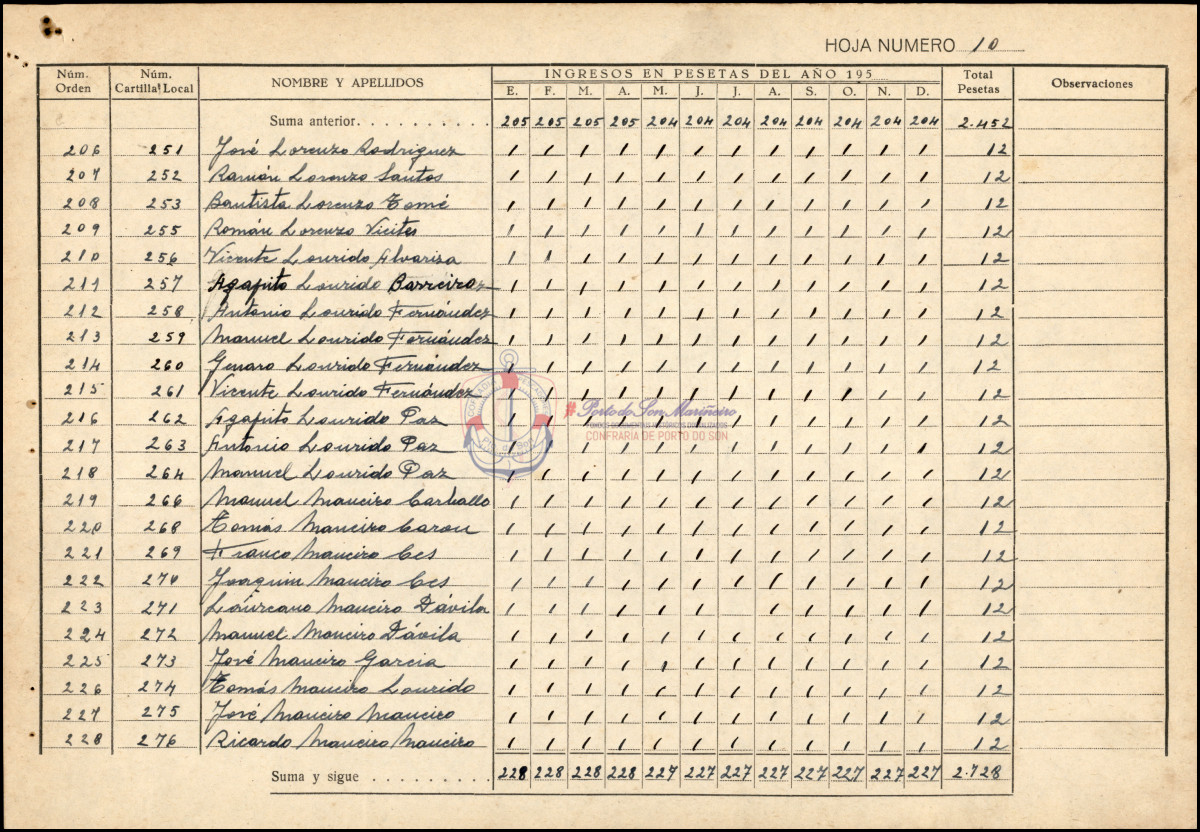 HOJA NUMERO 10
Núm. Orden Núm. Cartilla Local NOMBRE Y APELLIDOS INGRESOS EN PESETAS DEL AÑO 195 Total Pesetas Observaciones
E. F. M. A. M. J. J. A. S. O. N. D.
Suma anterior. . . . . . . . . . 205 205 205 205 204 204 204 204 204 204 204 204 2.452
206 251 José Lorenzo Rodriguez 1 1 1 1 1 1 1 1 1 1 1 1 12
207 252 Ramón Lorenzo Santos 1 1 1 1 1 1 1 1 1 1 1 1 12
208 253 Bautista Lorenzo Tomé 1 1 1 1 1 1 1 1 1 1 1 1 12
209 255 Román Lorenzo Vicites 1 1 1 1 1 1 1 1 1 1 1 1 12
210 256 Vicente Lourido Alvariza 1 1 1 1 1 1 1 1 1 1 1 1 12
211 257 Agapito Lourido Barreiro 1 1 1 1 1 1 1 1 1 1 1 1 12
212 258 Antonio Lourido Fernández 1 1 1 1 1 1 1 1 1 1 1 1 12
213 259 Manuel Lourido Fernández 1 1 1 1 1 1 1 1 1 1 1 1 12
214 260 Genaro Lourido Fernández 1 1 1 1 1 1 1 1 1 1 1 1 12
215 261 Vicente Lourido Fernández 1 1 1 1 1 1 1 1 1 1 1 1 12
216 262 Agapito Lourido Paz 1 1 1 1 1 1 1 1 1 1 1 1 12
217 263 Antonio Lourido Paz 1 1 1 1 1 1 1 1 1 1 1 1 12
218 264 Manuel Lourido Paz 1 1 1 1 1 1 1 1 1 1 1 1 12
219 266 Manuel Maneiro Carballo 1 1 1 1 1 1 1 1 1 1 1 1 12
220 268 Tomás Maneiro Carou 1 1 1 1 1 1 1 1 1 1 1 1 12
221 269 Franco Maneiro Ces 1 1 1 1 1 1 1 1 1 1 1 1 12
222 270 Joaquin Maneiro Ces 1 1 1 1 1 1 1 1 1 1 1 1 12
223 271 Laureano Maneiro Dávila 1 1 1 1 1 1 1 1 1 1 1 1 12
224 272 Manuel Maneiro Dávila 1 1 1 1 1 1 1 1 1 1 1 1 12
225 273 José Maneiro Garcia 1 1 1 1 1 1 1 1 1 1 1 1 12
226 274 Tomás Maneiro Lourido 1 1 1 1 1 1 1 1 1 1 1 1 12
227 275 José Maneiro Maneiro 1 1 1 1 1 1 1 1 1 1 1 1 12
228 276 Ricardo Maneiro Maneiro 1 1 1 1 1 1 1 1 1 1 1 1 12
Suma y sigue . . . . . . . . . 228 228 228 228 227 227 227 227 227 227 227 227 2.728
#Porto do Son Mariñeiro
CONFRARIA DE PORTO DO SON